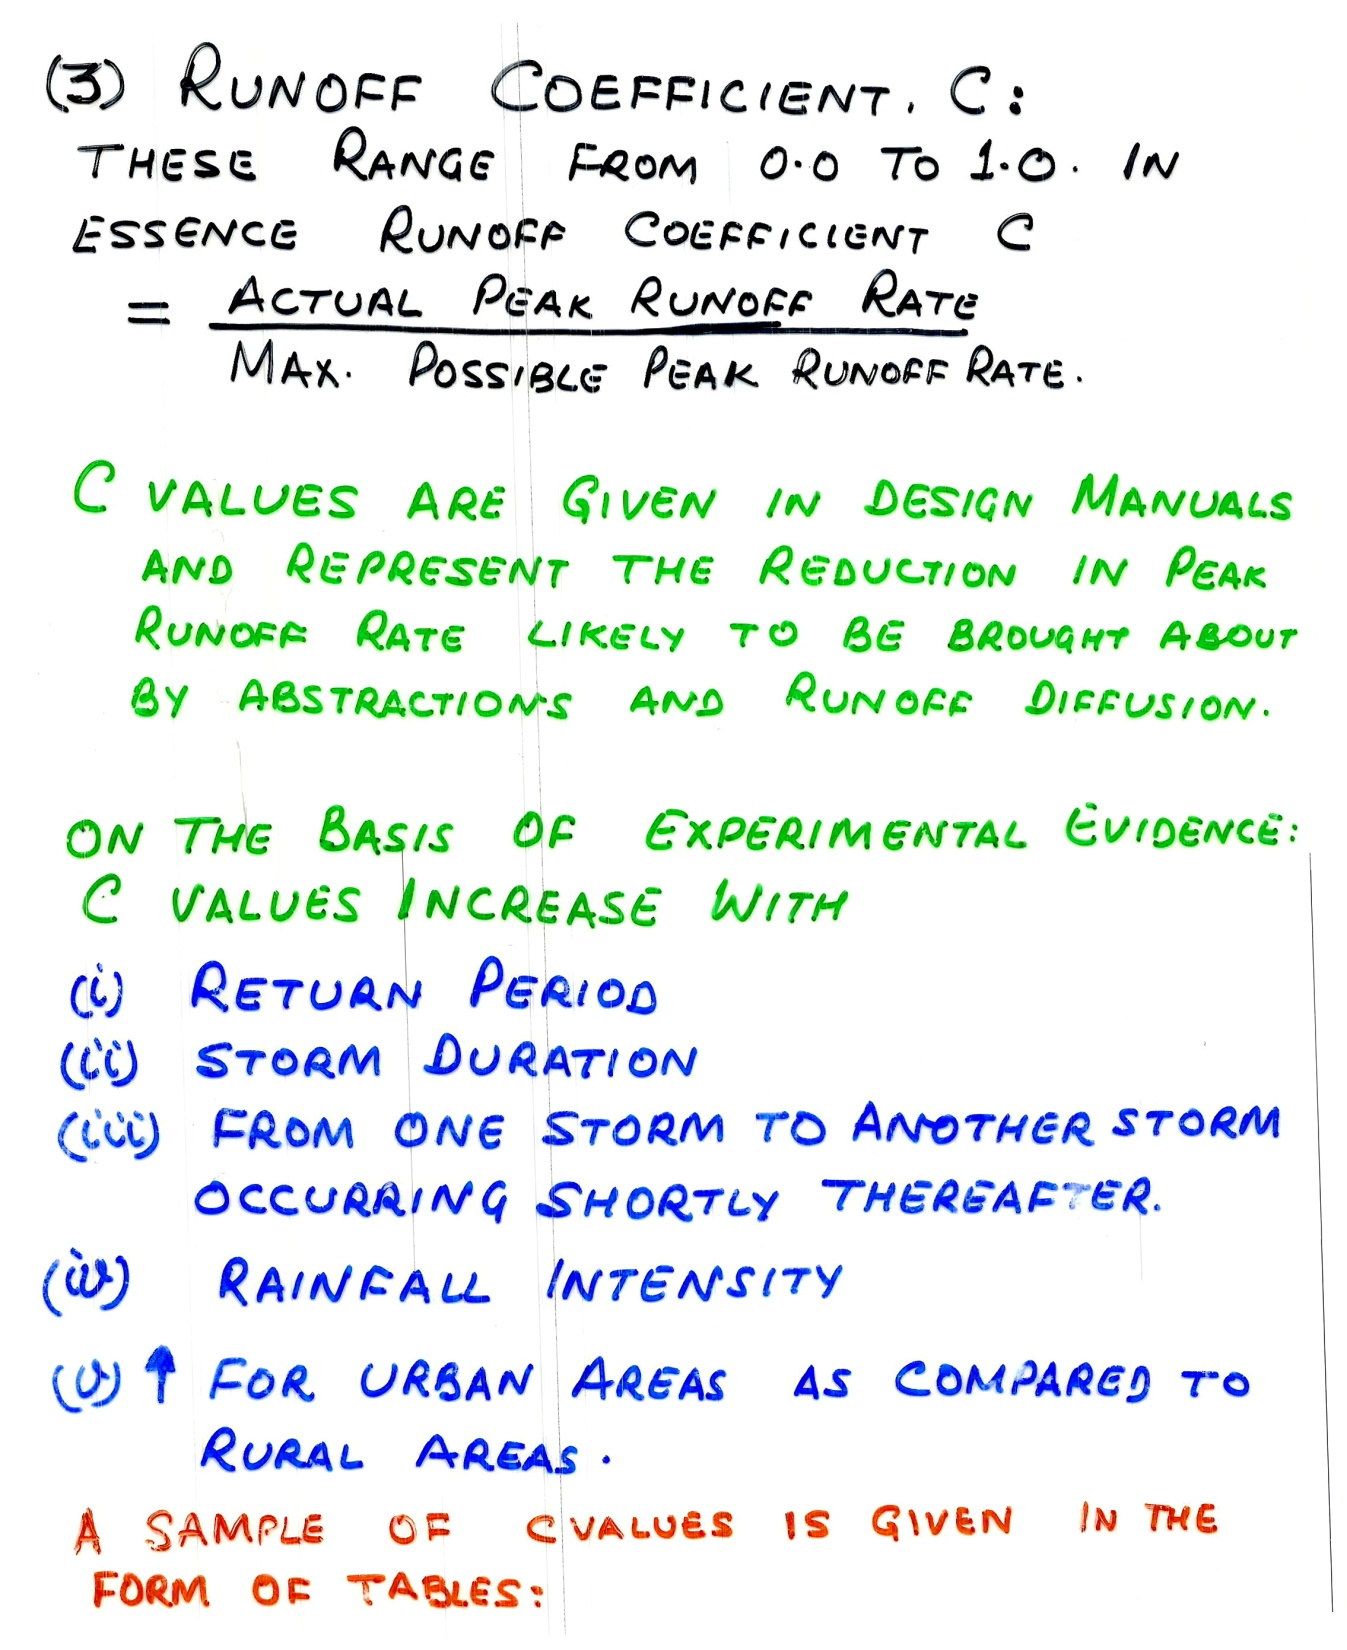 (3) RUNOFF COEFFICIENT, C:
THESE RANGE FROM 0.0 TO 1.0. IN
ESSENCE RUNOFF COEFFICIENT C
= ACTUAL PEAK RUNOFF RATE
MAX. POSSIBLE PEAK RUNOFF RATE.
C VALUES ARE GIVEN IN DESIGN MANUALS
AND REPRESENT THE REDUCTION IN PEAK
RUNOFF RATE LIKELY TO BE BROUGHT ABOUT
BY ABSTRACTIONS AND RUNOFF DIFFUSION.
ON THE BASIS OF EXPERIMENTAL EVIDENCE:
C VALUES INCREASE WITH
(i) RETURN PERIOD
(ii) STORM DURATION
(iii) FROM ONE STORM TO ANOTHER STORM
OCCURRING SHORTLY THEREAFTER.
(iv) RAINFALL INTENSITY
(v) ↑ FOR URBAN AREAS AS COMPARED TO
RURAL AREAS.
A SAMPLE OF C VALUES IS GIVEN IN THE
FORM OF TABLES: